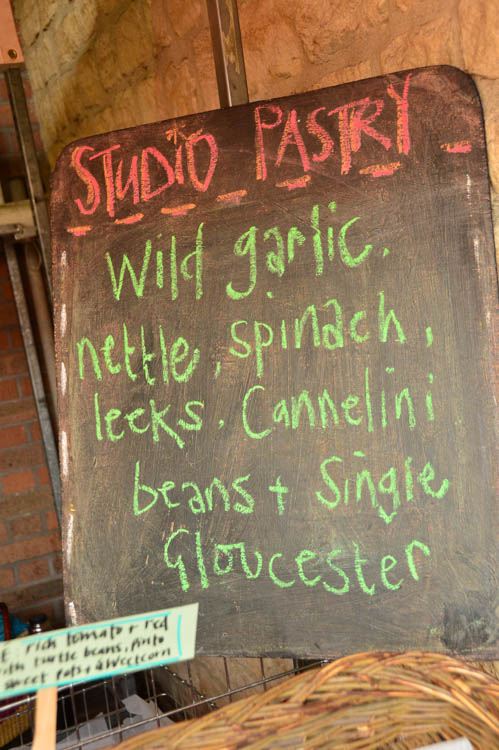 STUDIO PASTRY
Wild garlic.
nettle, spinach,
leeks, Cannelini
beans + Single
Gloucester
rich tomato + red
with turtle beans,
sweet pots + sweetcorn